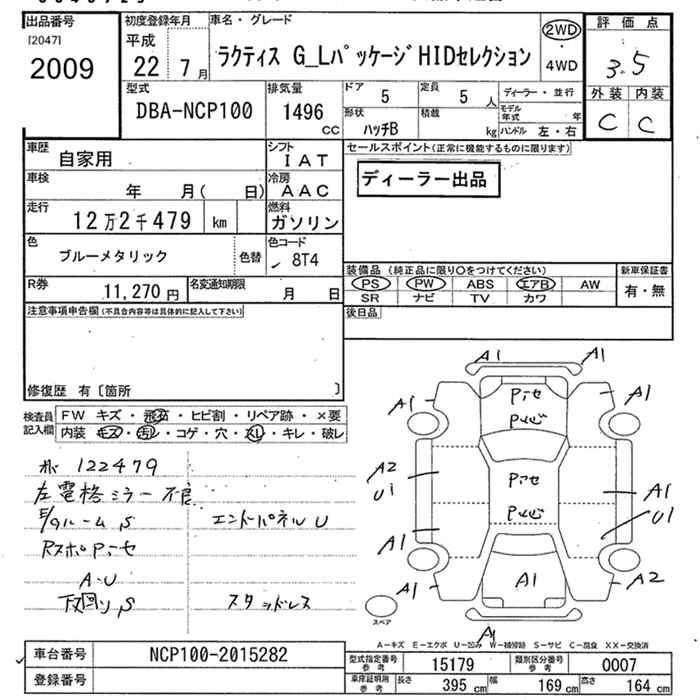 出品番号 初度登録年月 車名・グレード 評価点
[2047] 平成 2WD
2009 22 7月 ラクティス G_Lパッケージ HIDセレクション ・4WD 3.5
型式 排気量 ドア 5 定員 5人 ディーラー・並行 外装 内装
DBA-NCP100 1496cc 形状 ハッチB 積載 kg モデル年式 年 C C
ハンドル 左・右
車歴 自家用 シフト IAT セールスポイント(正常に機能するものに限ります)
車検 年 月( 日) 冷房 AAC ディーラー出品
走行 12万2千479 km 燃料 ガソリン
色 ブルーメタリック 色替 色コード 8T4
装備品(純正品に限り○をつけてください) 新車保証書
R券 11,270円 名変通知期限 月 日 PS PW ABS エアB AW 有・無
SR ナビ TV カワ
注意事項申告欄(不具合内容等は具体的に記入して下さい) 後日品
修復歴 有〔箇所 〕
検査員記入欄 FW キズ・飛石・ヒビ割・リペア跡・×要
内装 キズ・汚れ・コゲ・穴・スレ・キレ・破レ
122479
左電格ミラー不良
E/gルーム S エンドパネル U
Rスポ Pアセ
A・U
下回り S スタッドレス
A1 A1
A1 Pアセ A1
Pトビ
A2 Pアセ
U1 A1
Pトビ U1
A1
A1 A1 A2
スペア
A1
A－キズ E－エクボ U－凹み W－補修跡 S－サビ C－腐食 XX－交換済
車台番号 NCP100-2015282 型式指定番号 参考 15179 類別区分番号 参考 0007
登録番号 車庫証明用 参考 長さ 395cm 幅 169cm 高さ 164cm